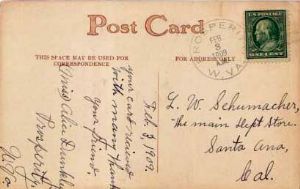 Post Card
THIS SPACE MAY BE USED FOR
CORRESPONDENCE
FOR ADDRESS ONLY
PROSPERITY
FEB
3
1909
W. VA.
ONE CENT
Feb 3, 1909.
your card received
with many thanks
your friend
Miss Alice Dunkley
Prosperity
W. Va
L. W. Schumacher,
The main Dept Store.
Santa Ana,
Cal.